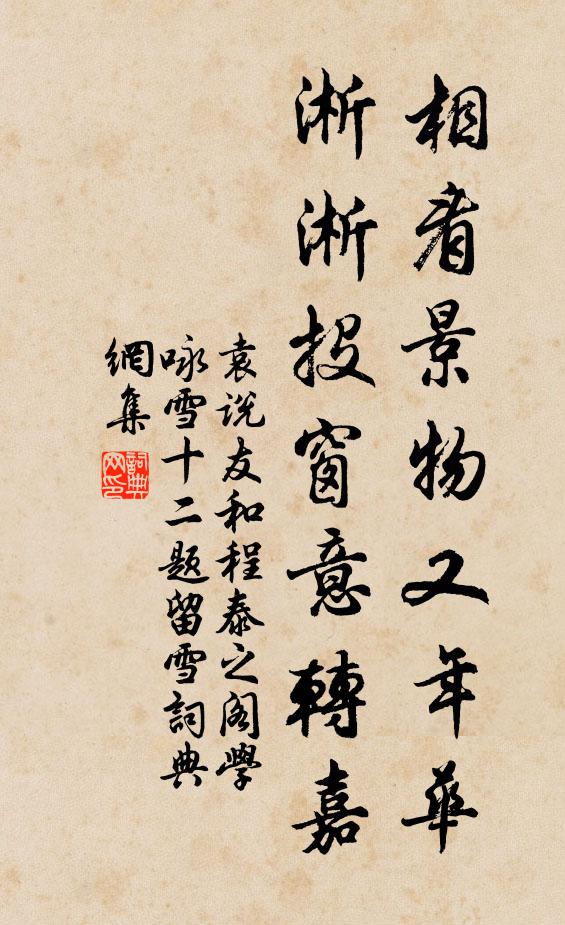 相看景物又年華
淅淅投窗意轉嘉
袁说友和程泰之阁學
咏雪十二题留雪詞典
網集
詞典
网印